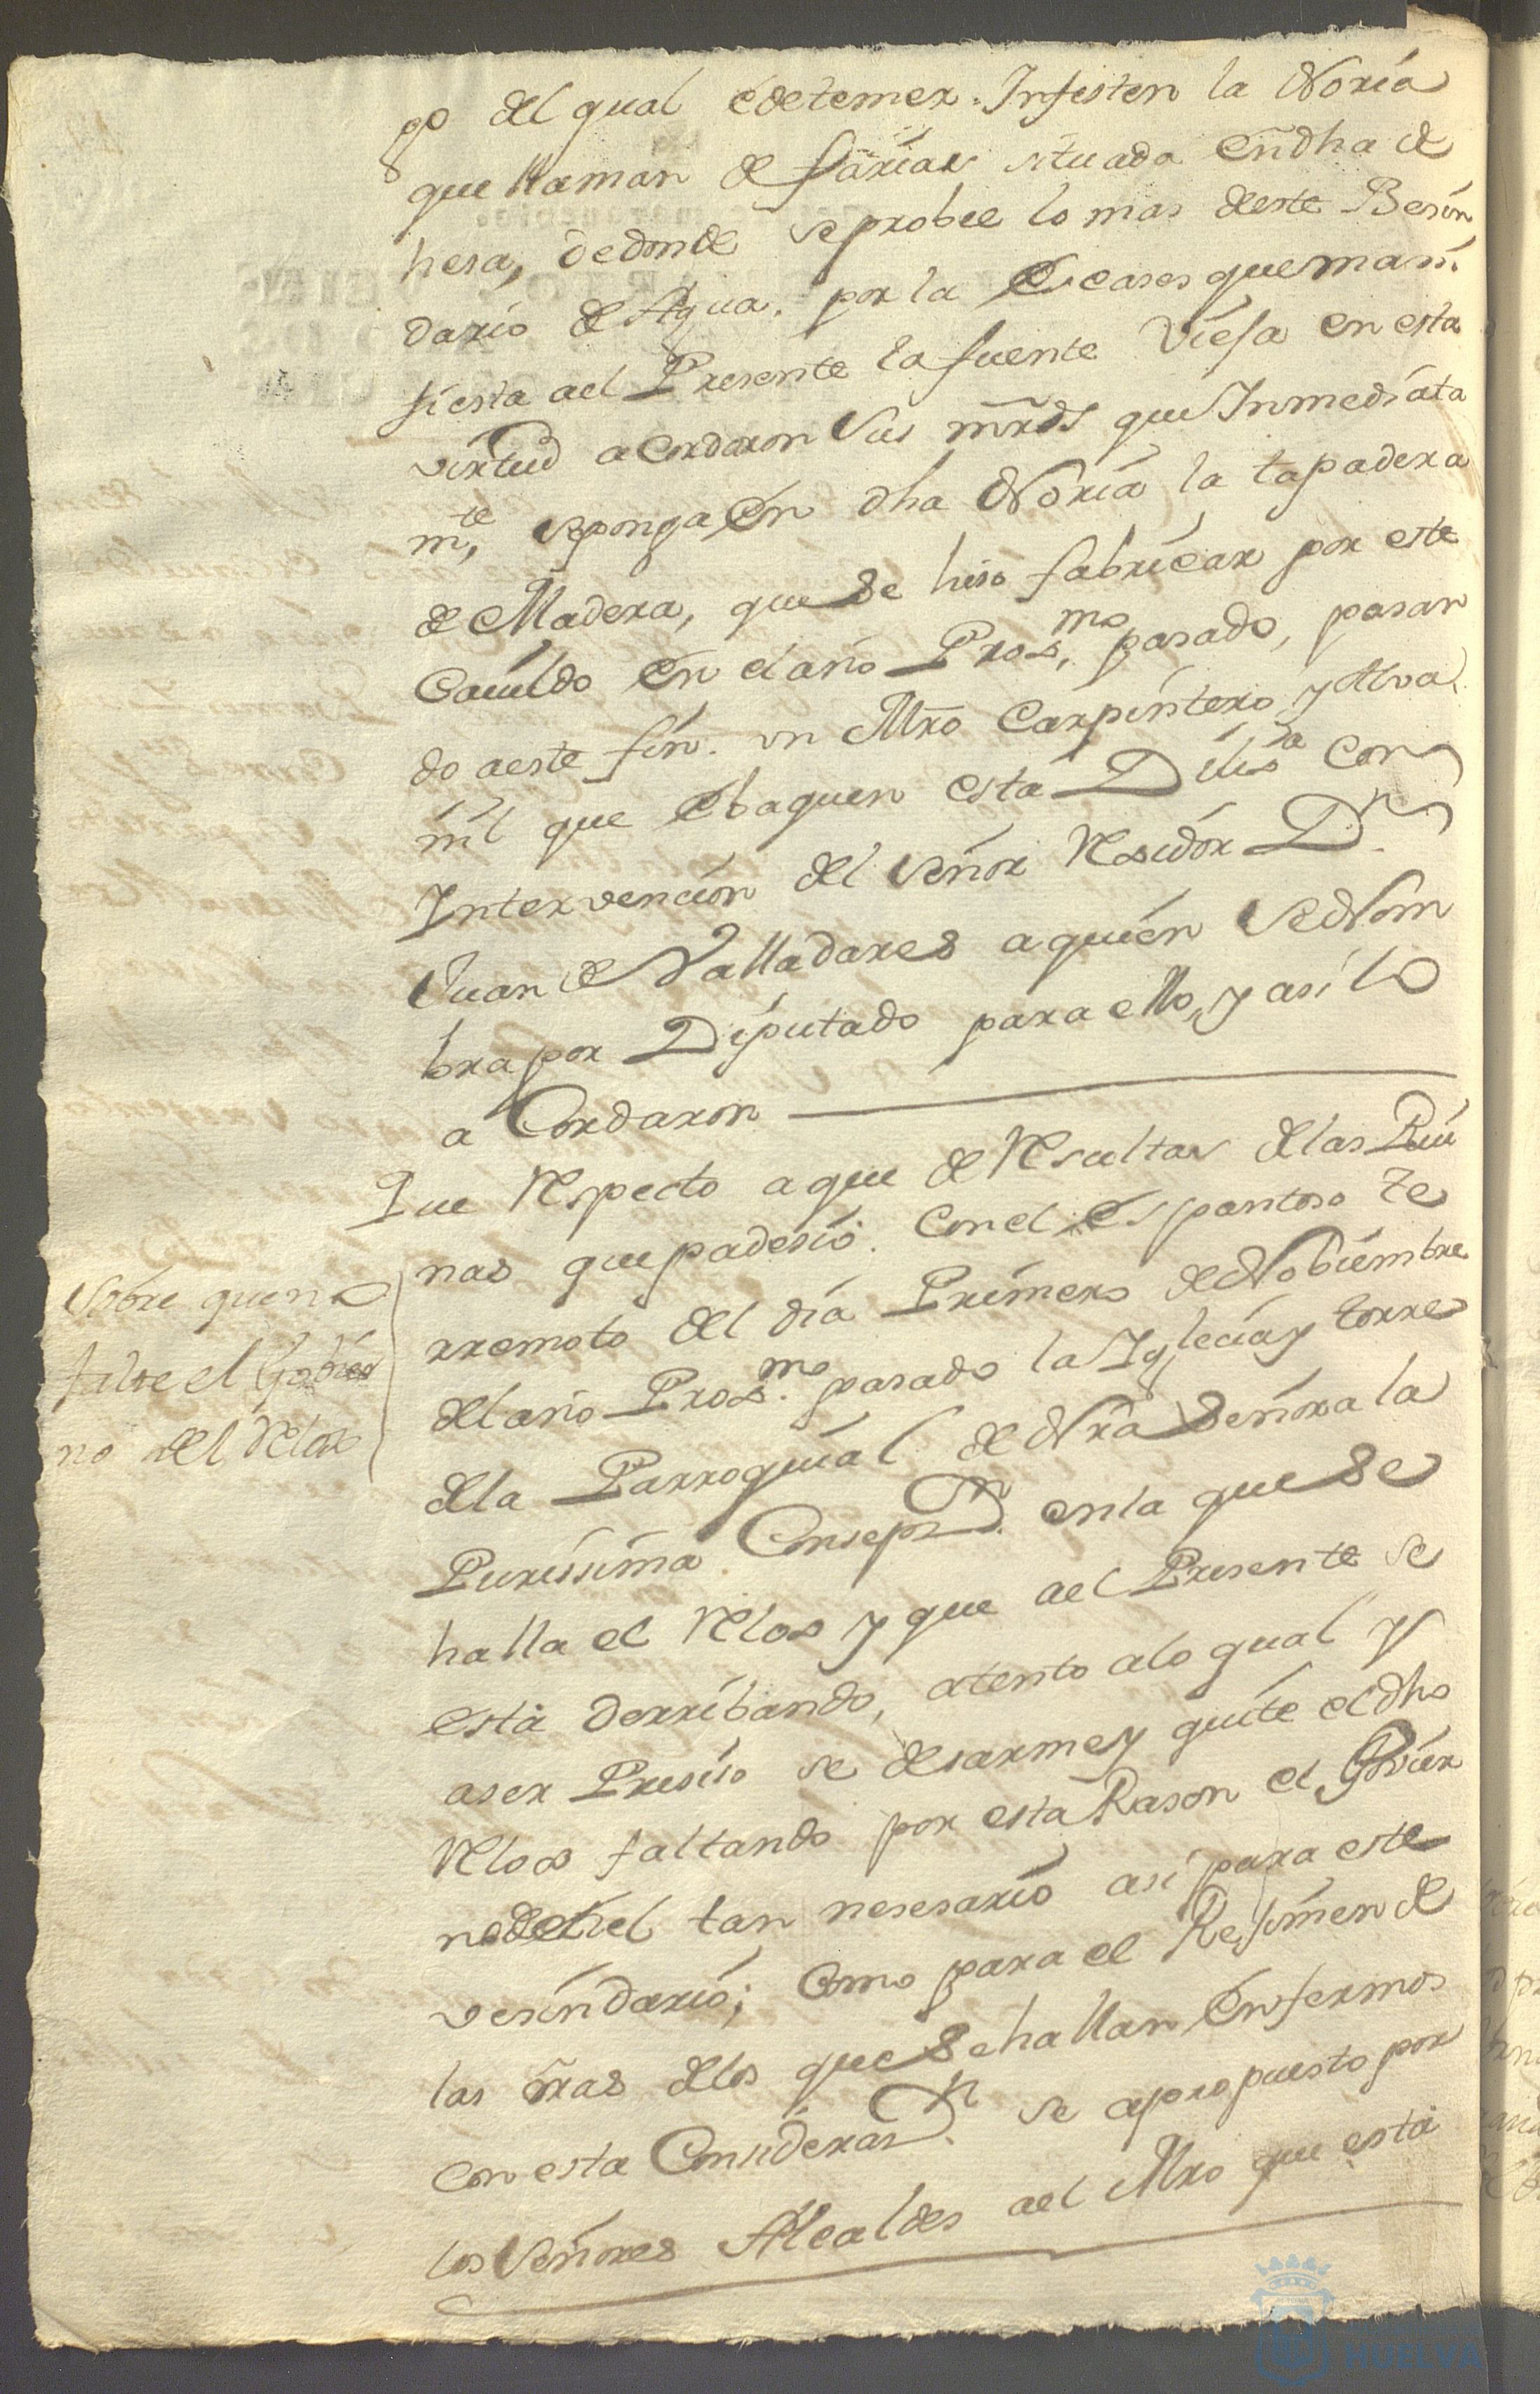 go del qual es de temer Infesten la Noria
que llaman de farias situada en dha de
hesa, de donde se probee lo mas deste Besin
dario de Agua, por la Escases que mani
fiesta ael Presente la fuente Viesa en esta
virtud acordaron Sus mrds que Inmediata
mte, se ponga En dha Noria la tapadera
de Madera, que se hiso fabricar por este
Cauildo En el año Proxmo, pasado, pasan
do a este fin. un Mro Carpintero, y Alva
nil que Ebaquen esta Dilisa con
Intervencion del señor Residor Dn
Juan de Valladares a quien se Nom
bra por Diputado para ello, y asi lo
a Cordaron
Que Respecto a que de Resultas de las Rui
nas que padesio. Con el Espantoso te
rremoto del dia Primero de Nobiembre
del año Proxmo. pasado la Yglecia y torre
Sobre que no
falte el Gobier
no del Relox
de la Parroquial de Nra Señora la
Purissima Consepn. en la que se
halla el Relox y que ael Presente se
esta derribando, atento a lo qual y
aser Presiso se desarme y quite el dho
Relox faltando por esta Rason el Govier
no del tan nesesario asi para este
vesindario; Como para el Resimen de
las oras de los que se hallan Enfermos
con esta Considerasn. se a propuesto por
los Señores Alcaldes ael Mro que esta
HUELVA